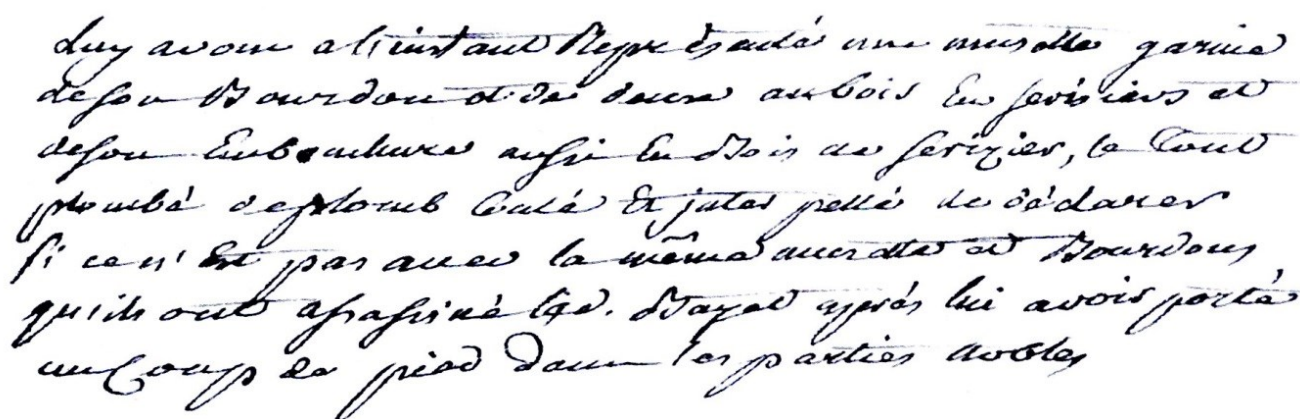 Luy avons a l'instant Representé une musette garnie
de son Bourdon et de deux aubois En serisiers et
de son Embouchure aussi En Bois de serizier, le tout
plombé de plomb Coulé Et jnterpellé de déclarer
si ce n'Est pas avec la même musette et Bourdons
qu'ils ont assassiné led. Bayet après lui avoir porté
un Coup de pied dans les parties nobles